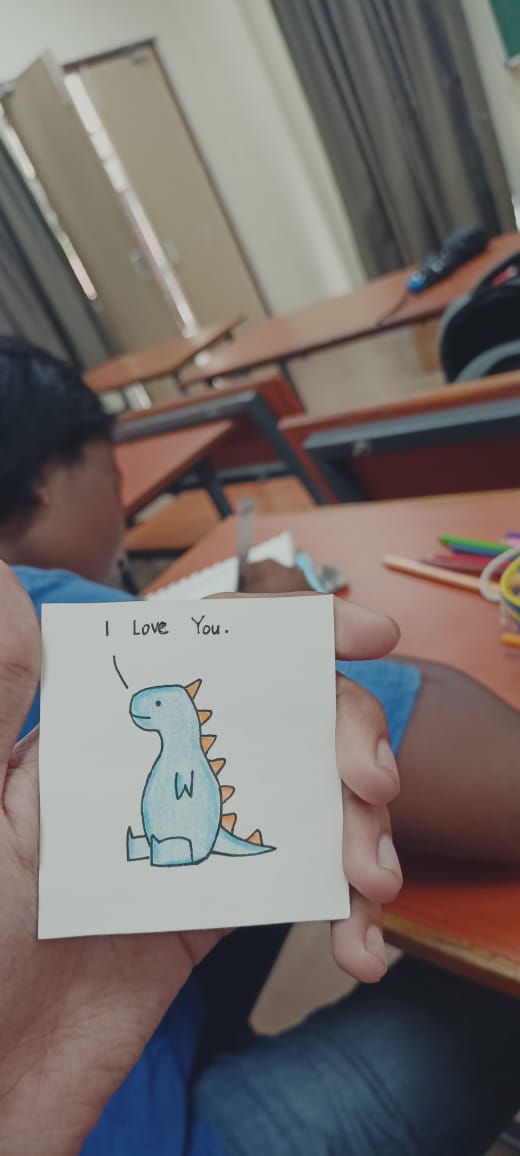 I Love You.